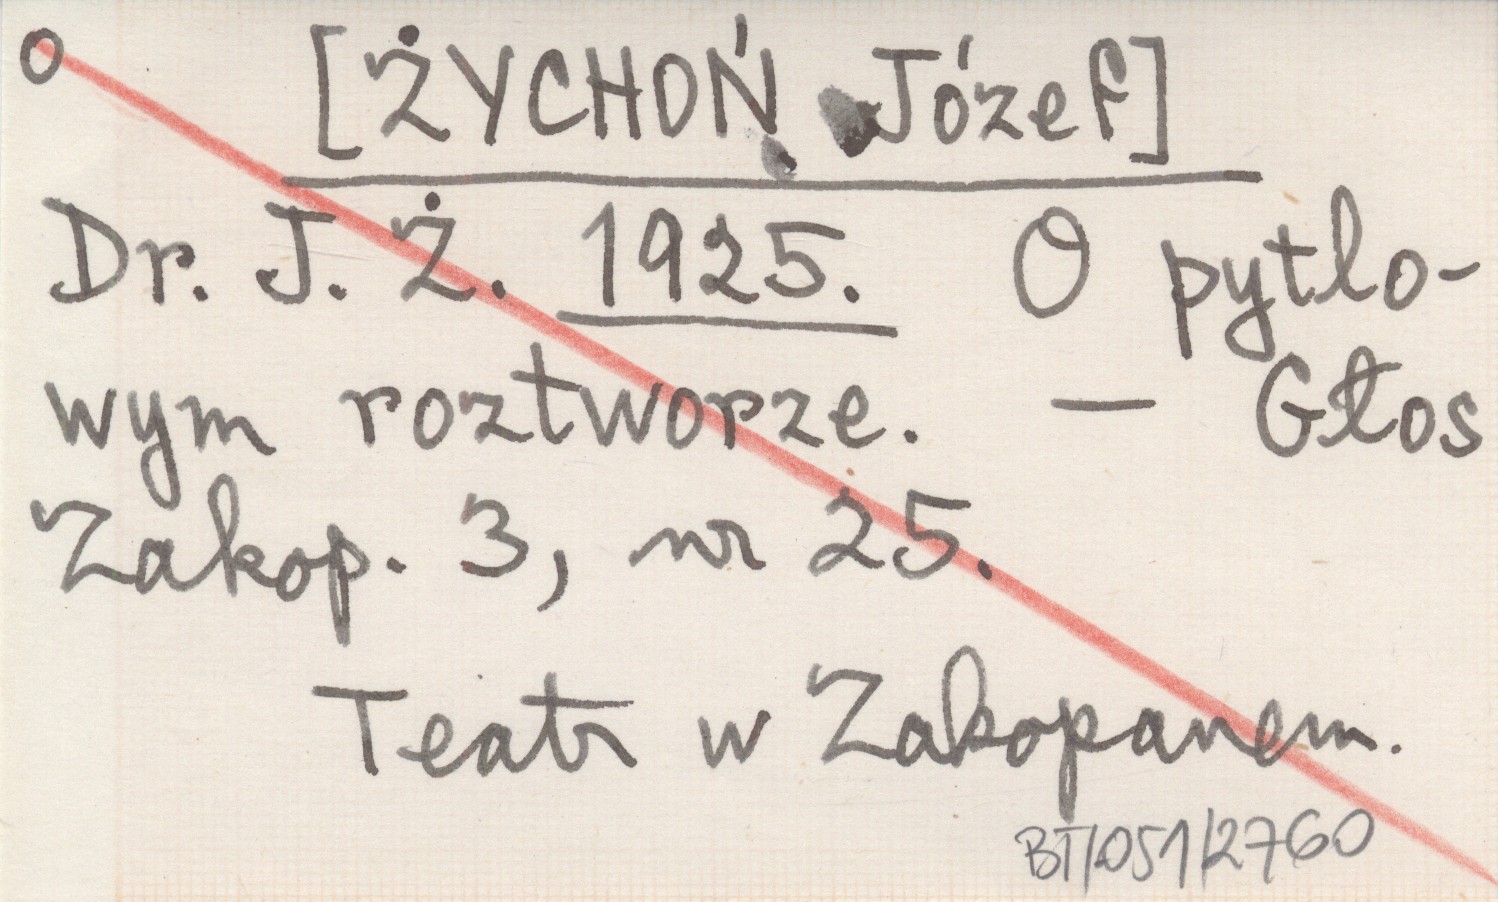 [ŻYCHOŃ Józef]
Dr. J. Ż. 1925. O pytlo-
wym roztworze. — Głos
Zakop. 3, nr 25.
Teatr w Zakopanem.
BT/051/2760